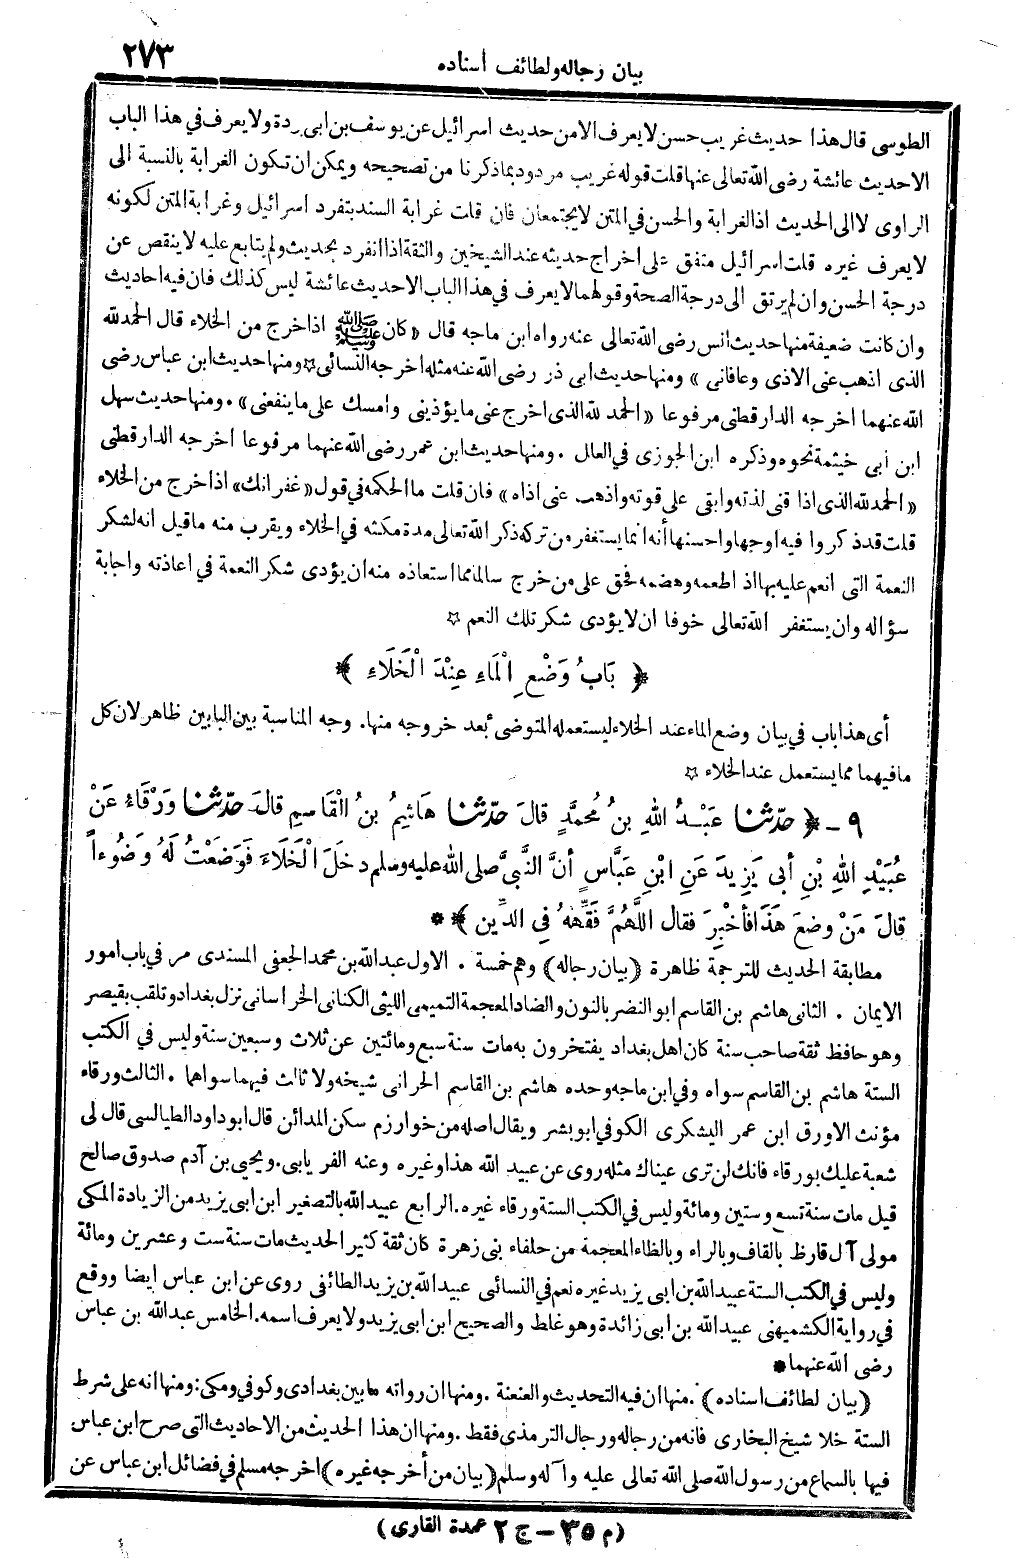 بيان رجاله ولطائف أسناده
٢٧٣
الطوسى قال هذا حديث غريب حسن لا يعرف الا من حديث اسرائيل عن يوسف بن ابى ردة ولا يعرف فى هذا الباب
الا حديث عائشة رضى الله تعالى عنها قلت قوله غريب مردود بما ذكرنا من تصحيحه ويمكن ان تكون الغرابة بالنسبة الى
الراوى لا الى الحديث اذ الغرابة والحسن فى المتن لا يجتمعان فان قلت غرابة السند بتفرد اسرائيل وغرابة المتن لكونه
لا يعرف غيره قلت اسرائيل متفق على اخراج حديثه عند الشيخين والثقة اذا انفرد بحديث ولم يتابع عليه لا ينقص عن
درجة الحسن وان لم يرتق الى درجة الصحة وقولهما لا يعرف فى هذا الباب الا حديث عائشة ليس كذلك فان فيه احاديث
وان كانت ضعيفة منها حديث انس رضى الله تعالى عنه رواه ابن ماجه قال «كان ﷺ اذا خرج من الخلاء قال الحمد لله
الذى اذهب عنى الاذى وعافانى» ومنها حديث ابى ذر رضى الله عنه مثله اخرجه النسائى ☆ ومنها حديث ابن عباس رضى
الله عنهما اخرجه الدارقطنى مرفوعا «الحمد لله الذى اخرج عنى ما يؤذينى وأمسك على ما ينفعنى». ومنها حديث سهل
ابن أبى خيثمة نحوه وذكره ابن الجوزى فى العلل . ومنها حديث ابن عمر رضى الله عنهما مرفوعا اخرجه الدارقطنى
«الحمد لله الذى اذا قنى لذته وابقى على قوته واذهب عنى اذاه» فان قلت ما الحكمة فى قول «غفرانك» اذا خرج من الخلاء
قلت قد ذكروا فيه اوجها واحسنها أنه انما يستغفر من تركه ذكر الله تعالى مدة مكثه فى الخلاء ويقرب منه ما قيل انه لشكر
النعمة التى انعم عليه بها اذ اطعمه وهضمه فحق على من خرج سالما مما استعاذه منه ان يؤدى شكر النعمة فى اعاذته واجابة
سؤاله وان يستغفر الله تعالى خوفا ان لا يؤدى شكر تلك النعم ☆
﴿ بَابُ وَضْعِ الْمَاءِ عِنْدَ الْخَلَاءِ ﴾
أى هذا باب فى بيان وضع الماء عند الخلاء ليستعمله المتوضى بعد خروجه منها. وجه المناسبة بين البابين ظاهر لان كل
ما فيهما مما يستعمل عند الخلاء ☆
٩ - ﴿ حدّثنا عَبْدُ اللهِ بنُ مُحمَّدٍ قالَ حدّثنا هَاشِمُ بنُ الْقَاسِمِ قالَ حدّثنا وَرْقَاءُ عَنْ
عُبَيْدِ اللهِ بْنِ أبى يَزِيدَ عَنِ ابْنِ عَبَّاسٍ أنَّ النَّبِىَّ صلى الله عليه وسلم دخَلَ الْخَلَاءَ فَوَضَعْتُ لَهُ وَضُوءاً
قالَ مَنْ وضعَ هَذَا فأُخْبِرَ فقال اللَّهُمَّ فَقِّهْهُ فِى الدِّينِ ﴾ **
مطابقة الحديث للترجمة ظاهرة (بيان رجاله) وهم خمسة . الاول عبد الله بن محمد الجعفى المسندى مر فى باب امور
الايمان . الثانى هاشم بن القاسم ابو النضر بالنون والضاد المعجمة التميمى الليثى الكنانى الخراسانى نزل بغداد وتلقب بقيصر
وهو حافظ ثقة صاحب سنة كان اهل بغداد يفتخرون به مات سنة سبع ومائتين عن ثلاث وسبعين سنة وليس فى الكتب
الستة هاشم بن القاسم سواه وفى ابن ماجه وحده هاشم بن القاسم الحرانى شيخه ولا ثالث فيهما سواهما . الثالث ورقاء
مؤنث الاورق ابن عمر اليشكرى الكوفى ابو بشر ويقال اصله من خوارزم سكن المدائن قال ابو داود الطيالسى قال لى
شعبة عليك بورقاء فانك لن ترى عيناك مثله روى عن عبيد الله هذا وغيره وعنه الفريابى. ويحيى بن آدم صدوق صالح
قيل مات سنة تسع وستين ومائة وليس فى الكتب الستة ورقاء غيره. الرابع عبيد الله بالتصغير ابن ابى يزيد من الزيادة المكى
مولى آل قارظ بالقاف وبالراء وبالظاء المعجمة من حلفاء بنى زهرة كان ثقة كثير الحديث مات سنة ست وعشرين ومائة
وليس فى الكتب الستة عبيد الله بن ابى يزيد غيره نعم فى النسائى عبيد الله بن يزيد الطائفى روى عن ابن عباس ايضا ووقع
فى رواية الكشميهنى عبيد الله بن ابى زائدة وهو غلط والصحيح ابن ابى يزيد ولا يعرف اسمه. الخامس عبد الله بن عباس
رضى الله عنهما *
(بيان لطائف اسناده). منها ان فيه التحديث والعنعنة . ومنها ان رواته ما بين بغدادى وكوفى ومكى: ومنها انه على شرط
الستة خلا شيخ البخارى فانه من رجاله ورجال الترمذى فقط. ومنها ان هذا الحديث من الاحاديث التى صرح ابن عباس
فيها بالسماع من رسول الله صلى الله تعالى عليه وآله وسلم (بيان من أخرجه غيره) اخرجه مسلم فى فضائل ابن عباس عن
(م ٣٥ - ج ٢ عمدة القارى)